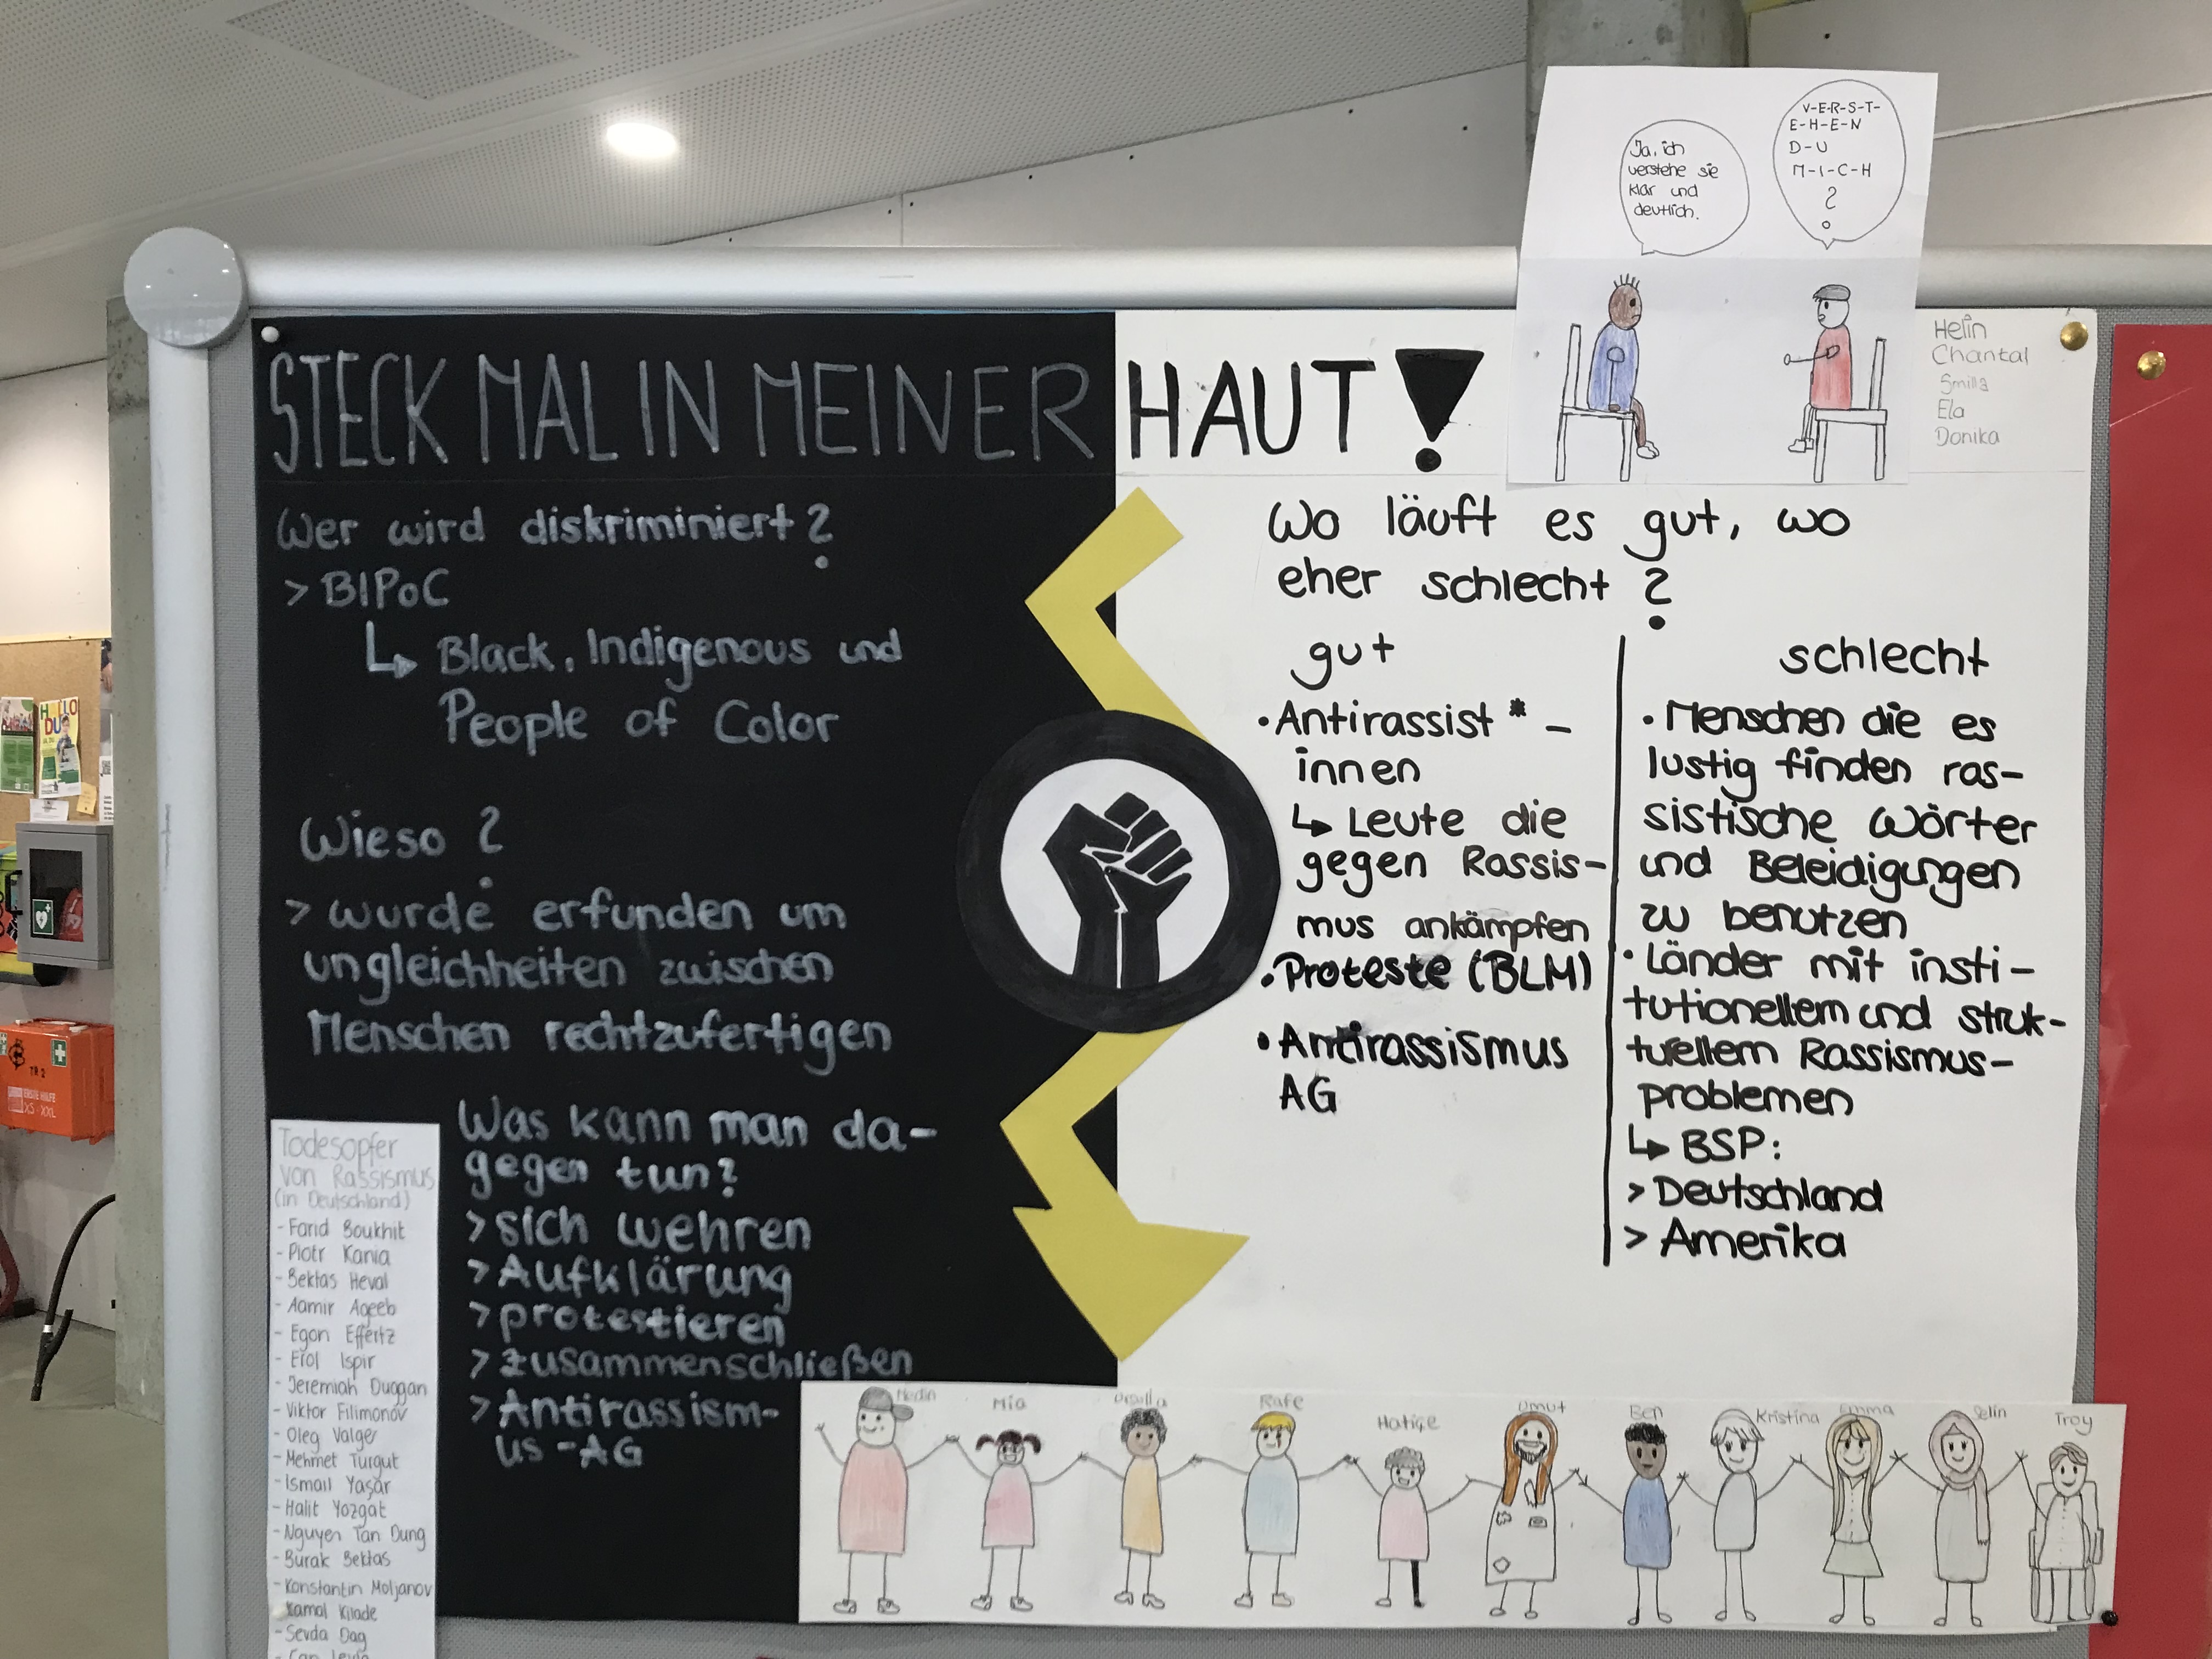 V-E-R-S-T-
E-H-E-N
D-U
M-I-C-H
?
Ja, ich
verstehe sie
klar und
deutlich.
Helin
Chantal
Smilla
Ela
Donika
STECK MAL IN MEINER HAUT!
Wer wird diskriminiert?
> BIPoC
↳ Black, Indigenous und
People of Color
Wieso?
> wurde erfunden um
ungleichheiten zwischen
Menschen rechtzufertigen
Was kann man da-
gegen tun?
> sich wehren
> Aufklärung
> protestieren
> zusammenschließen
> Antirassism-
us -AG
Todesopfer
von Rassismus
(in Deutschland)
- Farid Boukhit
- Piotr Kania
- Bektas Heval
- Aamir Ageeb
- Egon Effertz
- Erol Ispir
- Jeremiah Duggan
- Viktor Filimonov
- Oleg Valger
- Mehmet Turgut
- Ismail Yaşar
- Halit Yozgat
- Nguyen Tan Dung
- Burak Bektas
- Konstantin Moljanov
- Kamal Kilade
- Sevda Dag
Wo läuft es gut, wo
eher schlecht?
gut
• Antirassist*-
innen
↳ Leute die
gegen Rassis-
mus ankämpfen
• Proteste (BLM)
• Antirassismus
AG
schlecht
• Menschen die es
lustig finden ras-
sistische Wörter
und Beleidigungen
zu benutzen
• Länder mit insti-
tutionellem und struk-
turellem Rassismus-
problemen
↳ BSP:
> Deutschland
> Amerika
Mia
Rafe
Hatiçe
Umut
Ben
Kristina
Emma
Selin
Troy
HALLO
DU
TR 2
ERSTE HILFE
XS-XXL